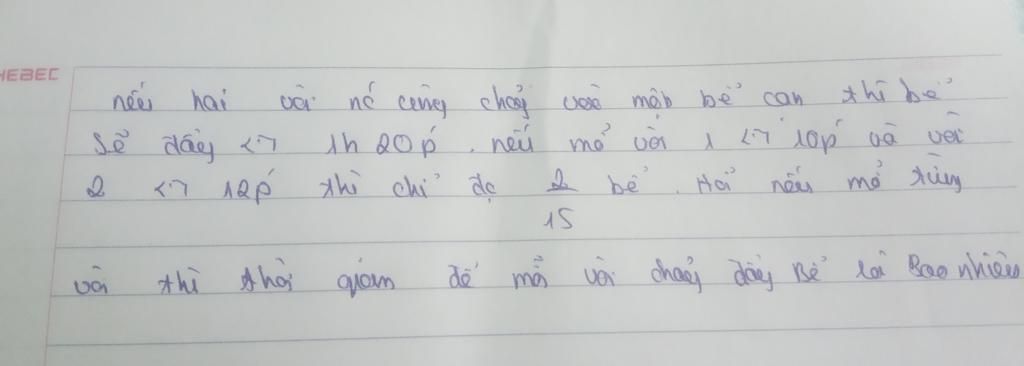 HEBEC
nếu hai vòi nc cùng chảy vào một bể cạn thì bể
Sẽ đầy <7 1h 20p. nếu mở vòi 1 <7 10p và vòi
2 <7 12p thì chỉ đc 2/15 bể. Hỏi nếu mở từng
vòi thì thời gian để mỗi vòi chảy đầy Bể là Bao nhiêu